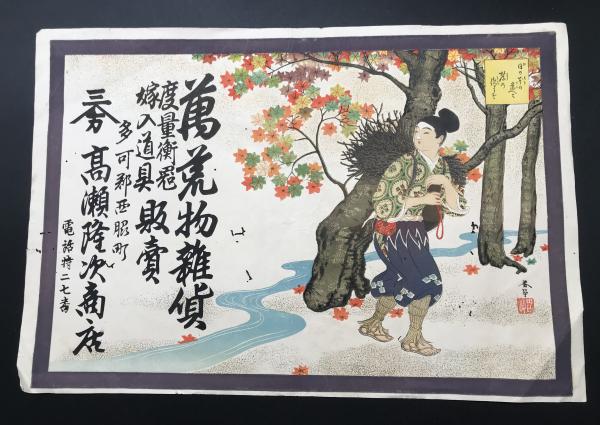 萬荒物雜貨
度量衡器
嫁入道具 販賣
多可郡西脇町
高瀬隆次商店
電話特二七番